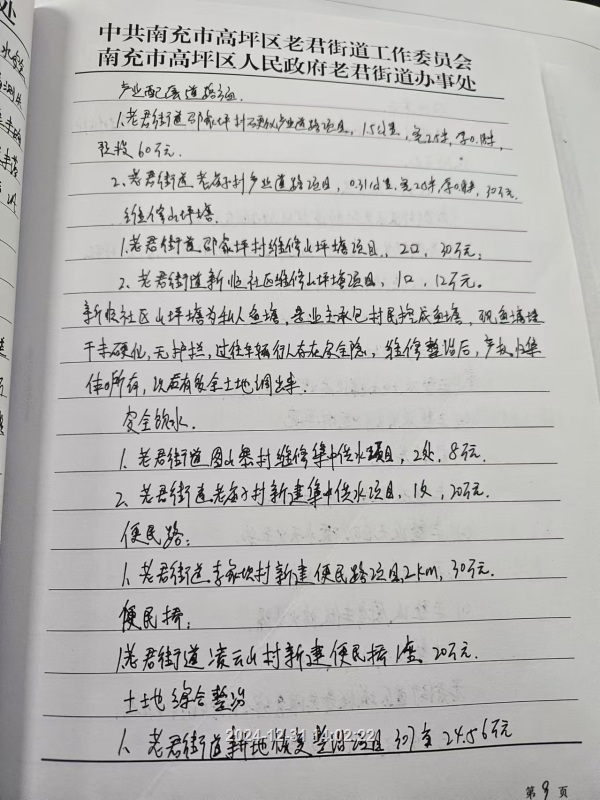 中共南充市高坪区老君街道工作委员会
南充市高坪区人民政府老君街道办事处
产业配套道路
1、老君街道邵家坪村硬化产业道路项目，1.5公里，宽2.5米，厚0.18米，
投 60万元.
2、老君街道老君村产业道路项目，0.31公里，宽2.5米，厚0.18米，30万元
维修山坪塘.
1、老君街道邵家坪村维修山坪塘项目，2口，30万元；
2、老君街道新临社区维修山坪塘项目，1口，12万元。
新临社区山坪塘为私人鱼塘，是业主承包村民挖成鱼塘，现鱼塘埂
未硬化，无护拦，过往车辆行人存在安全隐，维修整治后，产权归集
体所有，业主有安全土地调出来.
安全饮水.
1、老君街道图山村维修集中供水项目，2处，8万元.
2、老君街道老君村新建集中供水项目，1处，20万元.
便民路：
1、老君街道李家坝村新建便民路项目，2km，30万元.
便民桥：
1、老君街道凌云山村新建便民桥 座 20万元.
土地综合整治
1、老君街道耕地恢复整治项目 307亩 24.56万元
2024-12-31 14:02:22
第9页